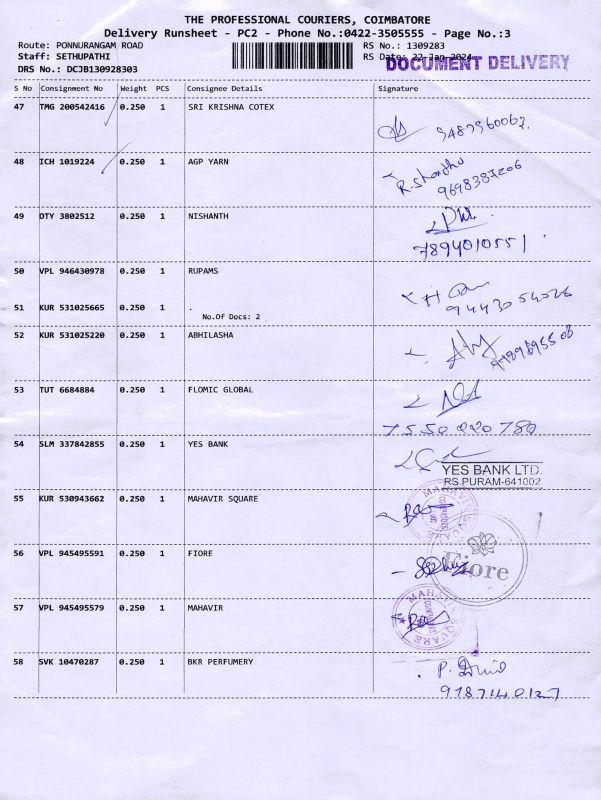 THE PROFESSIONAL COURIERS, COIMBATORE
Delivery Runsheet - PC2 - Phone No.:0422-3505555 - Page No.:3
Route: PONNURANGAM ROAD
RS No.: 1309283
Staff: SETHUPATHI
RS Date: 22-Jan-2024
DOCUMENT DELIVERY
DRS No.: DCJB130928303
S No Consignment No Weight PCS Consignee Details Signature
47 TMG 200542416 0.250 1 SRI KRISHNA COTEX
48 ICH 1019224 0.250 1 AGP YARN
9698387206
49 DTY 3802512 0.250 1 NISHANTH
7894010551
50 VPL 946430978 0.250 1 RUPAMS
51 KUR 531025665 0.250 1 .
No.Of Docs: 2
9443054026
52 KUR 531025220 0.250 1 ABHILASHA
53 TUT 6684884 0.250 1 FLOMIC GLOBAL
7550220780
54 SLM 337842855 0.250 1 YES BANK
YES BANK LTD.
RS PURAM-641002
55 KUR 530943662 0.250 1 MAHAVIR SQUARE
MAHAVIR SQUARE
56 VPL 945495591 0.250 1 FIORE
Fiore
57 VPL 945495579 0.250 1 MAHAVIR
MAHAVIR SQUARE
58 SVK 10470287 0.250 1 BKR PERFUMERY
9787140127